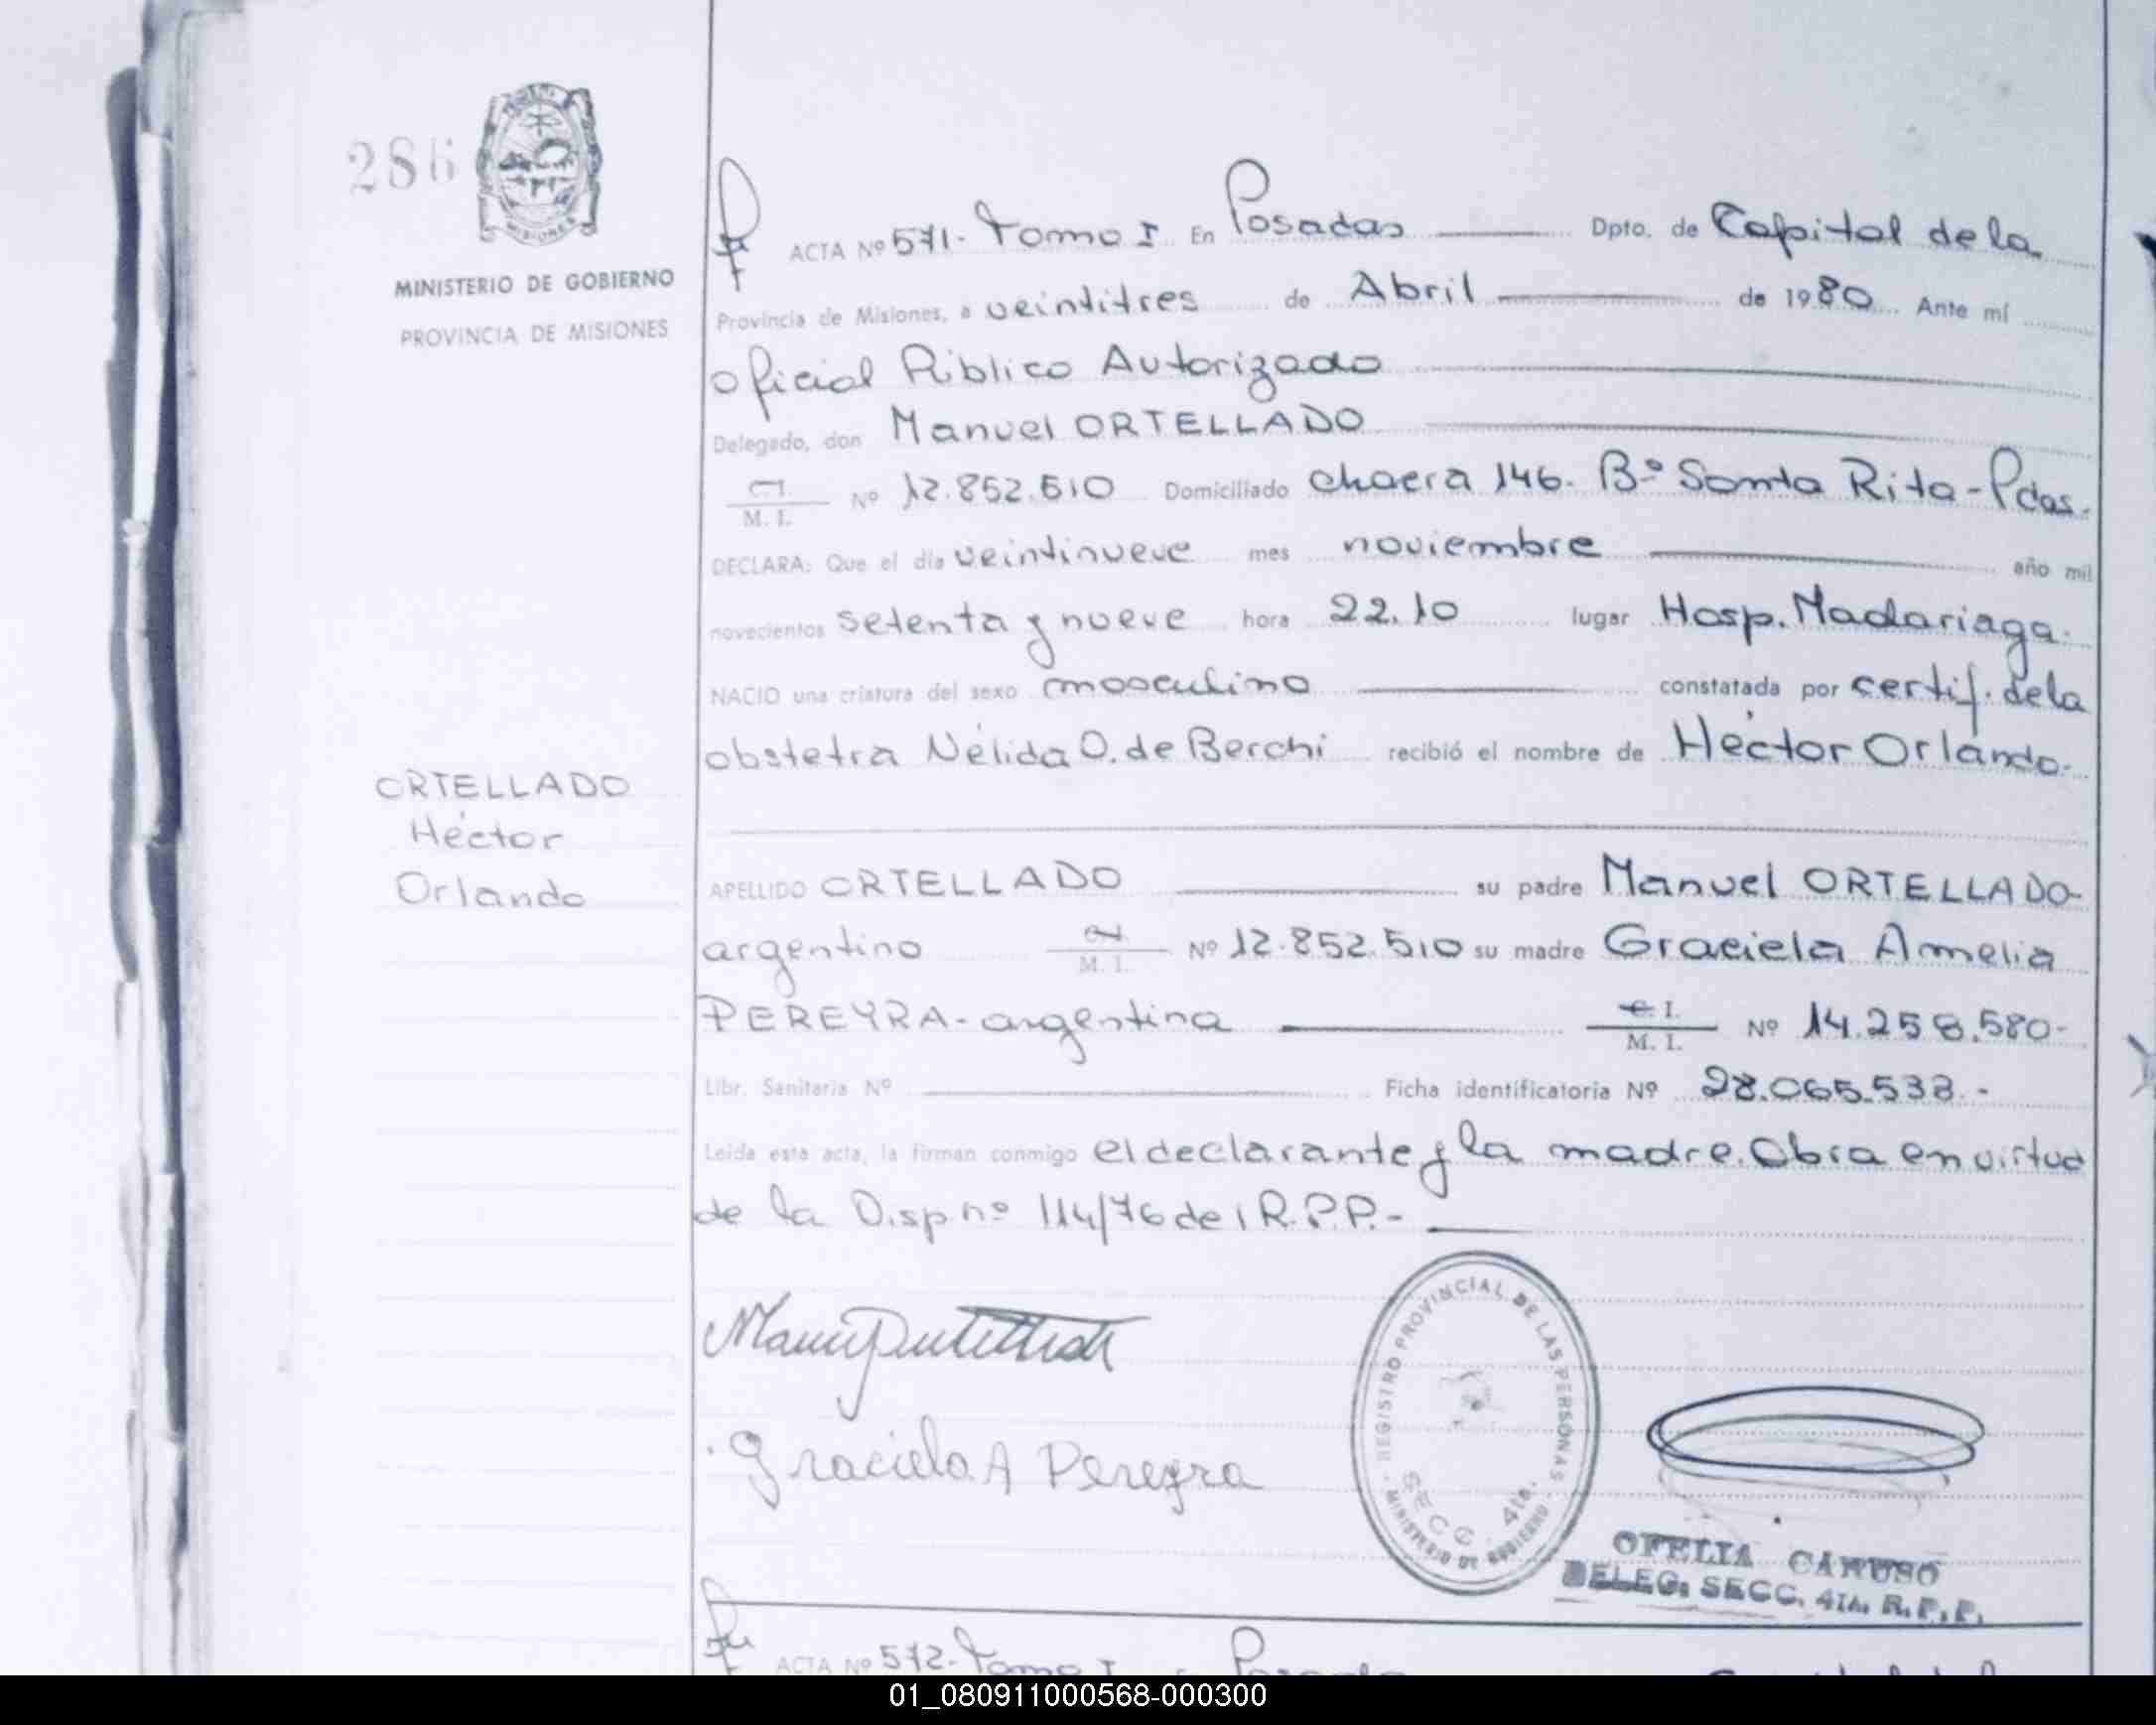 286
MINISTERIO DE GOBIERNO
PROVINCIA DE MISIONES
MISIONES
ACTA Nº 571- Tomo I En Posadas Dpto. de Capital de la
Provincia de Misiones, a veintitres de Abril de 1980 Ante mí
Oficial Público Autorizado
Delegado, don Manuel ORTELLADO
C.I. M. I. Nº 12.852.510 Domiciliado chacra 146. Bº Santa Rita - Pdas.
DECLARA: Que el día veintinueve mes noviembre año mil
novecientos setenta y nueve hora 22.10 lugar Hosp. Madariaga.
NACIO una criatura del sexo masculino constatada por certif. de la
obstetra Nélida O. de Berchi recibió el nombre de Héctor Orlando.
ORTELLADO
Héctor
Orlando
APELLIDO ORTELLADO su padre Manuel ORTELLADO-
argentino C.I. M. I. Nº 12.852.510 su madre Graciela Amelia
PEREYRA- argentina C.I. M. I. Nº 14.258.580-
Libr. Sanitaria Nº Ficha identificatoria Nº 28.065.538.-
Leída esta acta, la firman conmigo el declarante y la madre. Obra en virtud
de la Disp nº 114/76 del R.P.P.-
Graciela A Pereyra
REGISTRO PROVINCIAL DE LAS PERSONAS
SECC. 4ta.
MINISTERIO DE GOBIERNO
OFELIA CARUSO
DELEG. SECC. 4TA. R.P.P.
ACTA Nº 572- Tomo I
01_080911000568-000300